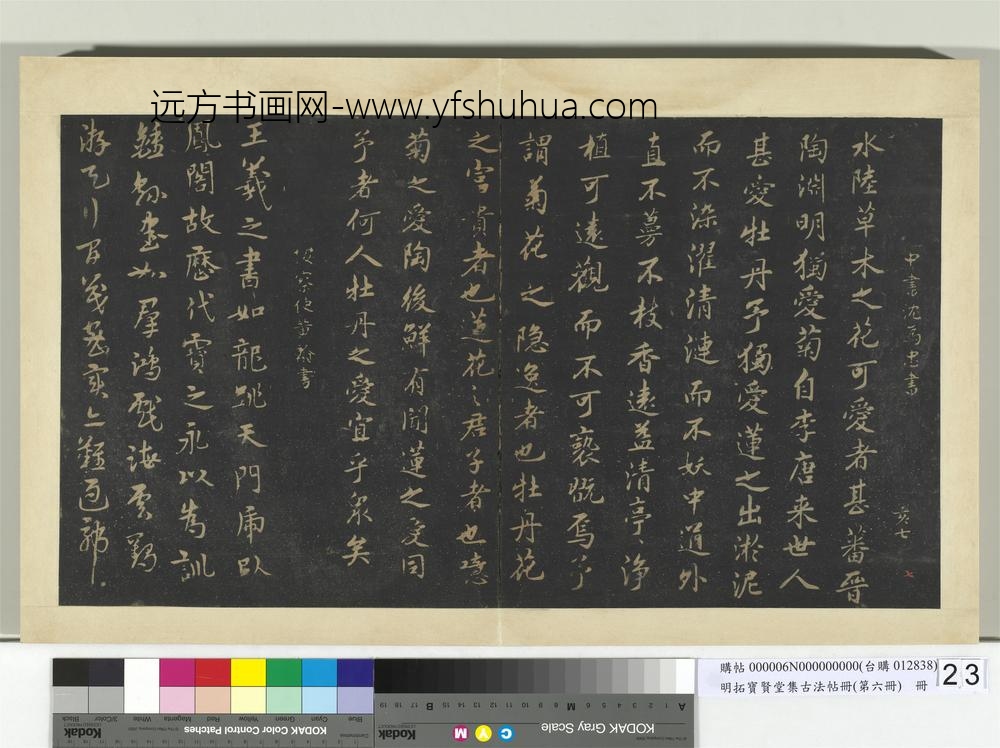 远方书画网-www.yfshuhua.com
中書沈為忠書
水陸草木之花可愛者甚蕃晉
陶淵明獨愛菊自李唐来世人
甚愛牡丹予獨愛蓮之出淤泥
而不染濯清漣而不妖中通外
直不蔓不枝香遠益清亭、淨
植可遠觀而不可褻翫焉予
謂菊花之隠逸者也牡丹花
之富貴者也蓮花之君子者也噫
菊之愛陶後鮮有聞蓮之愛同
予者何人牡丹之愛宜乎衆矣
王羲之書如龍跳天門虎臥
鳳閣故歷代寶之永以為訓
鍾繇書如羣鴻戲海雲鵠
游天行間茂密實亦難過
購帖 000006N000000000(台購 012838)
明拓寶賢堂集古法帖冊(第六冊) 冊
23
KODAK Color Control Patches
Kodak
Blue
Cyan
Green
Yellow
Red
Magenta
White
3/Color
Black
KODAK Gray Scale
Kodak
C
Y
M
A
M
B